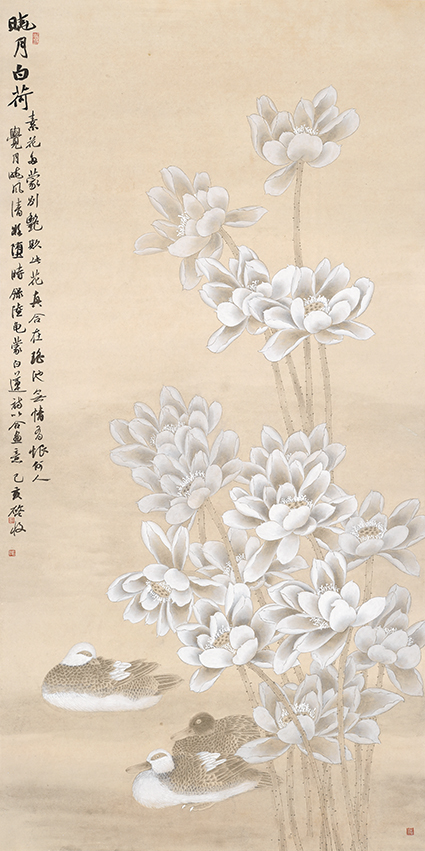 曉月白荷
素花多蒙别艷欺此花真合在瑶池無情有恨何人
覺月曉風清欲墮時錄陸龜蒙白蓮詩以合畫意己亥